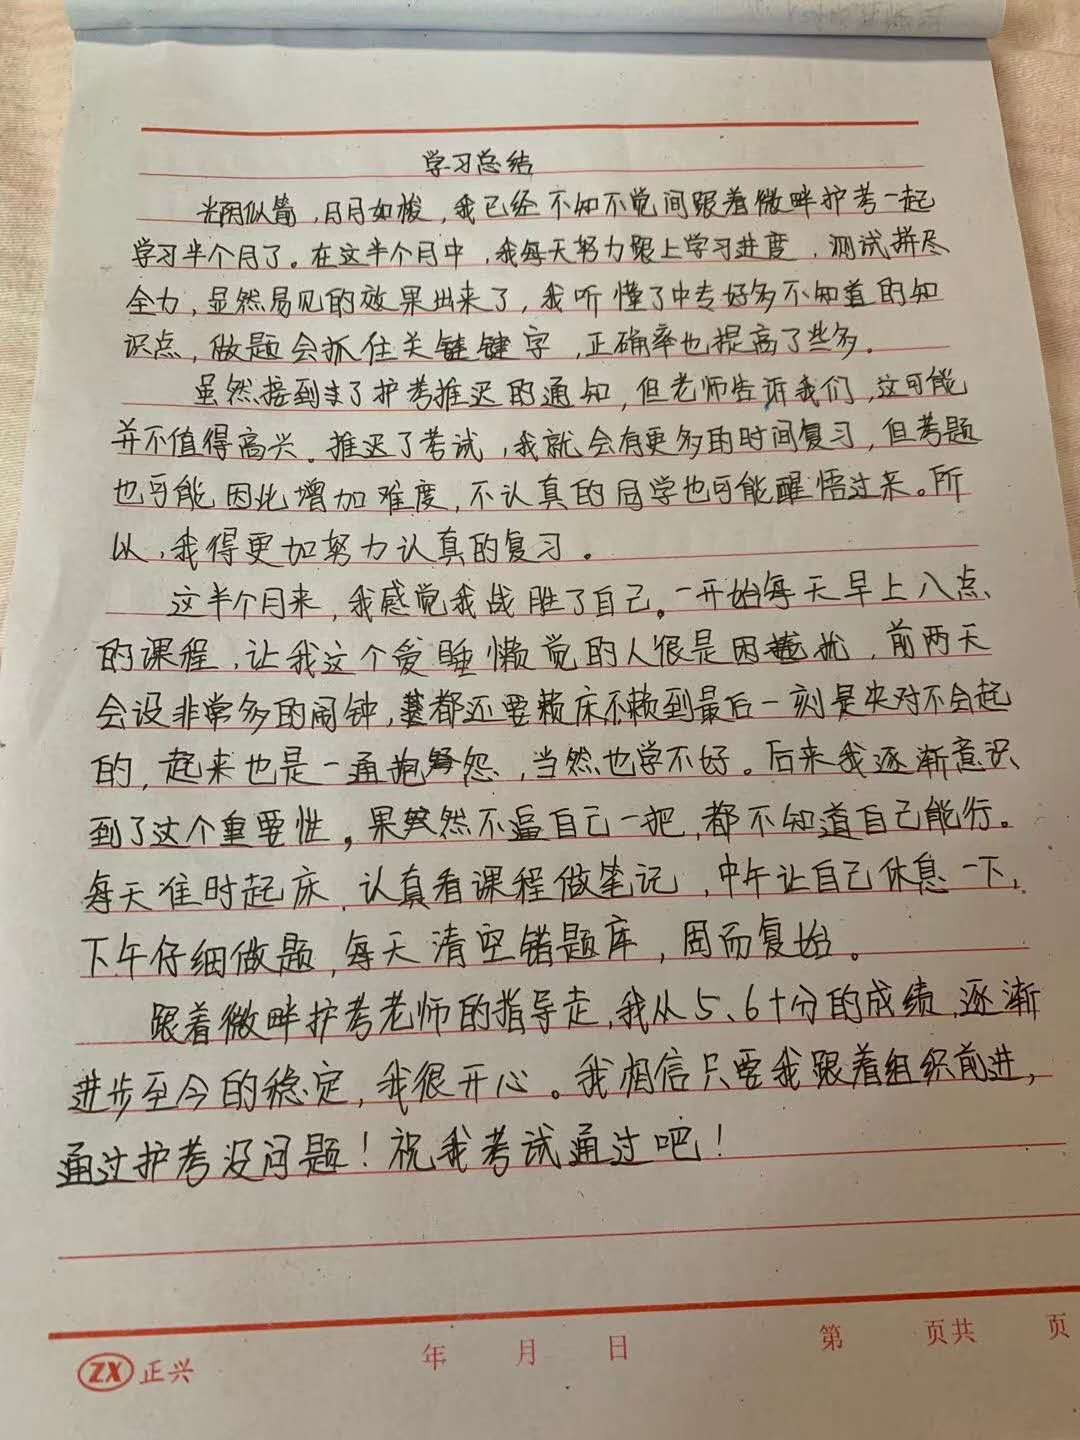 学习总结
光阴似箭，日月如梭，我已经不知不觉间跟着微畔护考一起
学习半个月了。在这半个月中，我每天努力跟上学习进度，测试拼尽
全力，显然易见的效果出来了，我听懂了中专好多不知道的知
识点，做题会抓住关键字，正确率也提高了些多。
虽然接到了护考推迟的通知，但老师告诉我们，这可能
并不值得高兴。推迟了考试，我就会有更多的时间复习，但考题
也可能因此增加难度，不认真的同学也可能醒悟过来。所
以，我得更加努力认真的复习。
这半个月来，我感觉我战胜了自己。一开始每天早上八点
的课程，让我这个爱睡懒觉的人很是困扰，前两天
会设非常多的闹钟，都还要赖床，不赖到最后一刻是决对不会起
的，起来也是一通抱怨，当然也学不好。后来我逐渐意识
到了这个重要性，果然不逼自己一把，都不知道自己能行。
每天准时起床，认真看课程做笔记，中午让自己休息一下，
下午仔细做题，每天清空错题库，周而复始。
跟着微畔护考老师的指导走，我从5、6十分的成绩，逐渐
进步至今的稳定，我很开心。我相信只要我跟着组织前进，
通过护考没问题！祝我考试通过吧！
年 月 日 第 页共 页
ZX 正兴